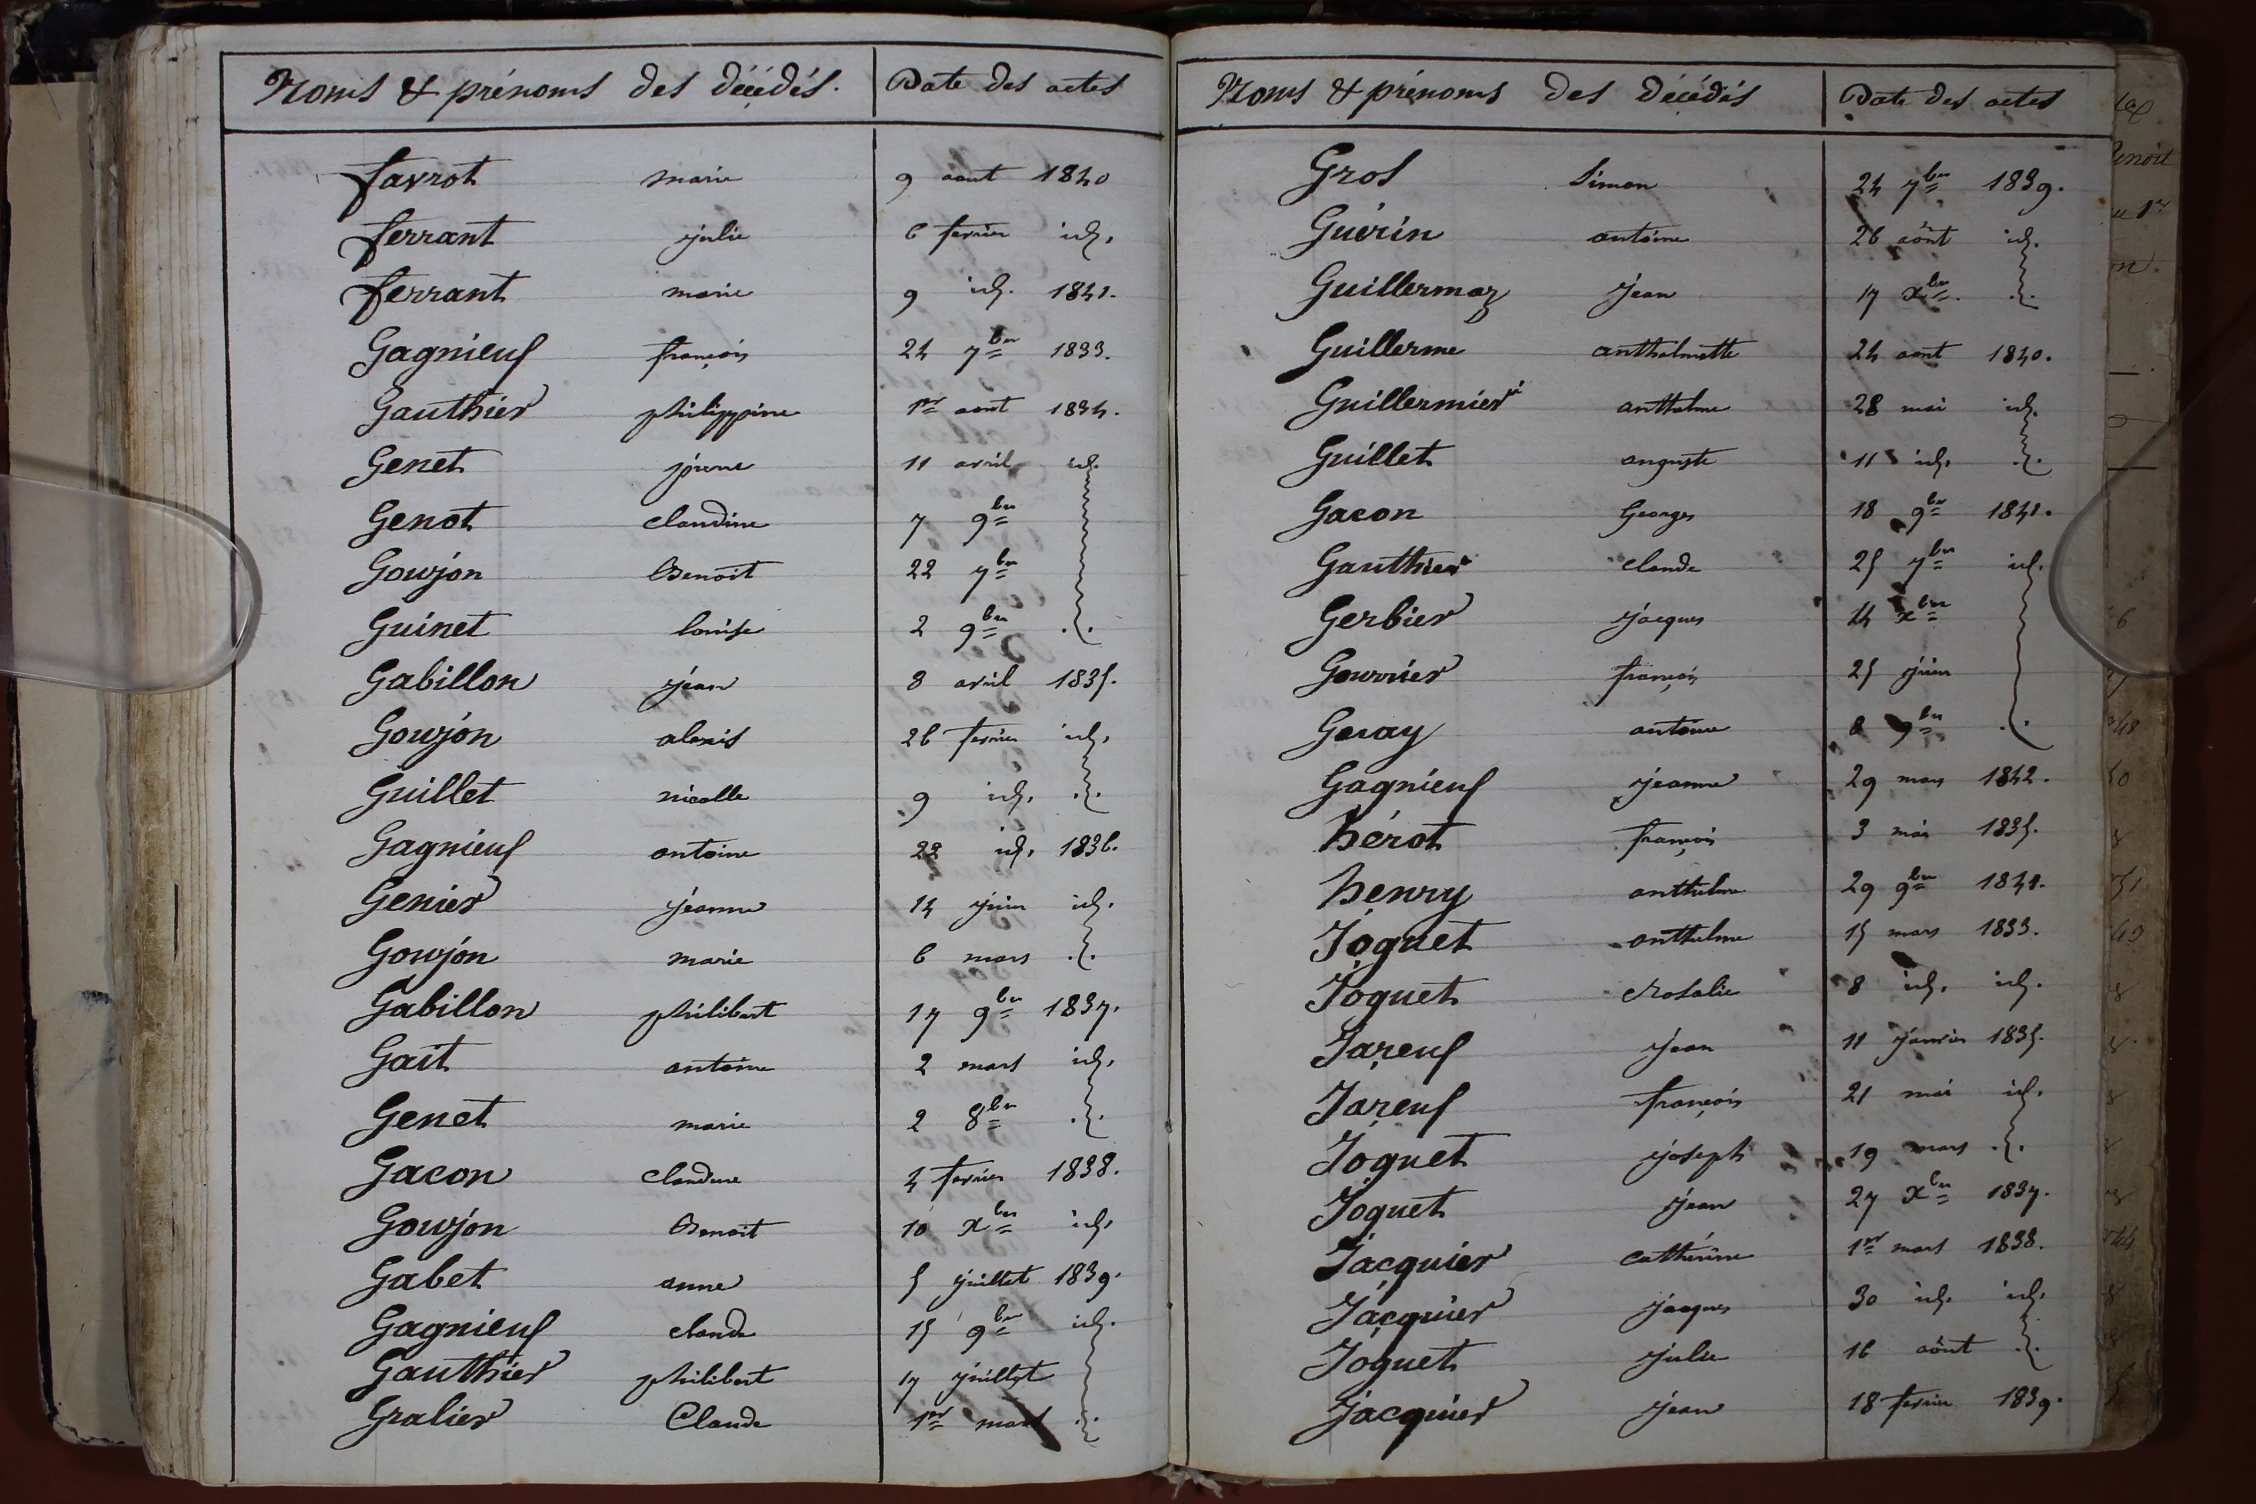 Noms & prénoms des décédés. Date des actes
favrot marie 9 aout 1840
ferrant julie 6 fevrier id.
ferrant marie 9 id. 1841.
Gagnieuf françois 24 7bre 1833.
Gauthier philippine 1er aout 1834.
Genet pierre 11 avril id.
Genot claudine 7 9bre
Goujon Benoit 22 7bre
Guinet louise 2 9bre
Gabillon jean 8 avril 1835.
Goujon alexis 26 fevrier id.
Guillet nicolle 9 id.
Gagnieuf antoine 22 id. 1836.
Genier jeanne 14 juin id.
Goujon marie 6 mars
Gabillon philibert 17 9bre 1837.
Gait antoine 2 mars id.
Genet marie 2 8bre
Gacon Claudine 4 fevrier 1838.
Goujon Benoit 10 xbre id.
Gabet anne 5 juillet 1839.
Gagnieuf claude 15 9bre id.
Gauthier philibert 17 juillet
Gralier Claude 1er mars
Noms & prénoms des décédés Date des actes
Gros Simon 24 7bre 1839.
Guérin antoine 26 aôut id.
Guillermaz jean 17 xbre.
Guillerme anthelmette 24 aout 1840.
Guillermier anthelme 28 mai id.
Guillet auguste 11 id.
Gacon Georges 18 9bre 1841.
Gauthier claude 25 7bre id.
Gerbier jacques 14 xbre
Gouvrier françois 25 juin
Geray antoine 8 9bre
Gagnieuf jeanne 29 mars 1842.
hérot françois 3 mai 1835.
henry anthelme 29 9bre 1841.
Joguet anthelme 15 mars 1833.
Joguet Rosalie 8 id. id.
Jareuf jean 11 janvier 1835.
Jareuf françois 21 mai id.
Joguet joseph 19 mars
Joguet jean 27 xbre 1837.
Jacquier cathérine 1er mars 1838.
Jacquier jacques 30 id. id.
Joguet julie 16 aôut
Jacquier jean 18 fevrier 1839.